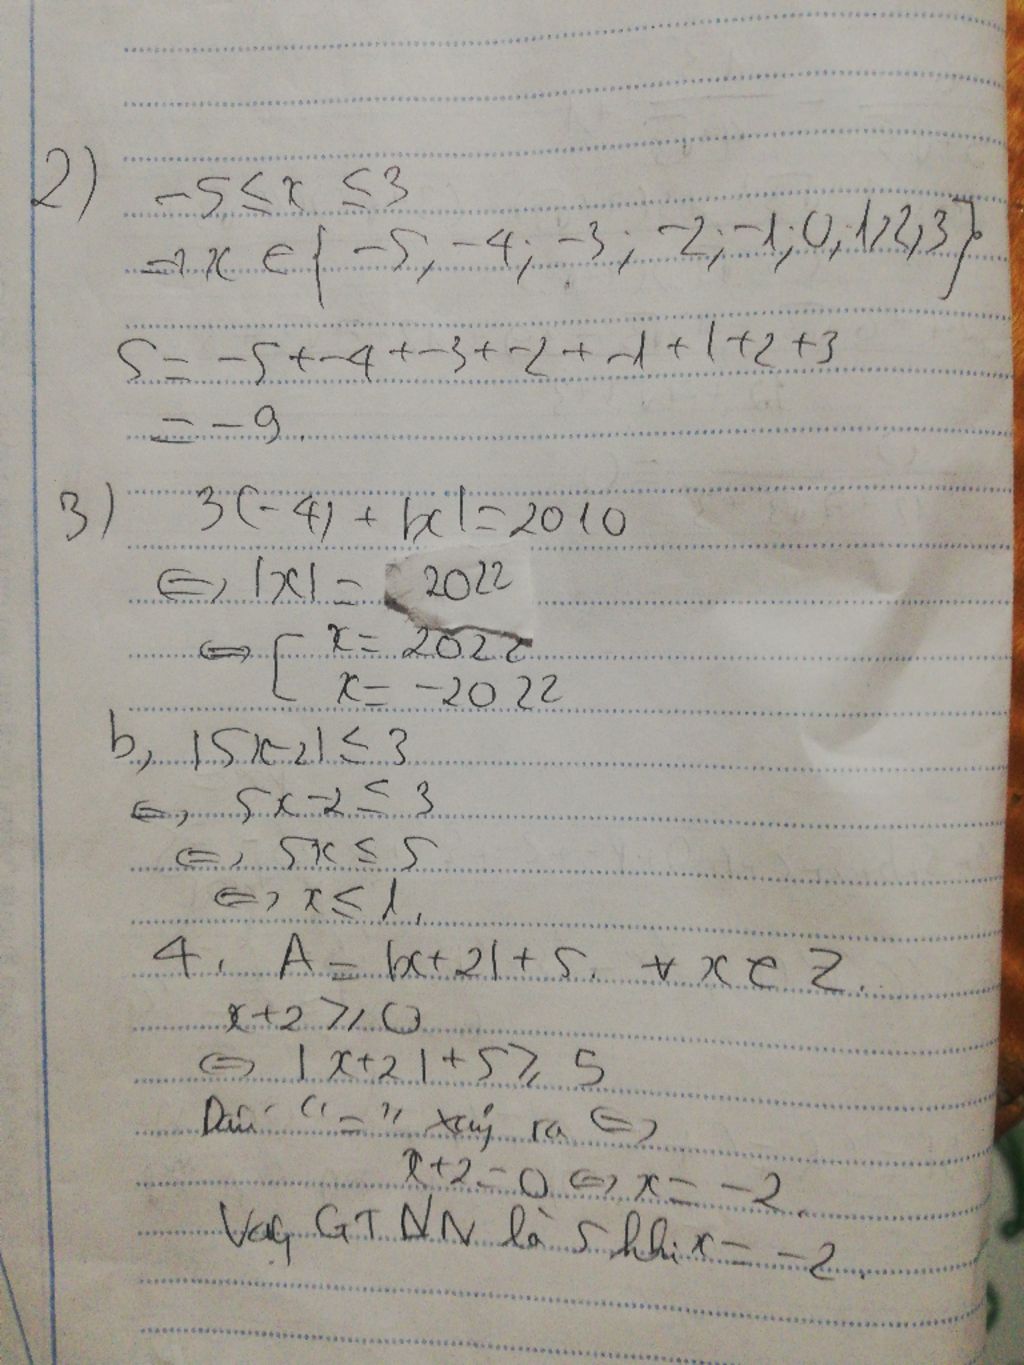 2) -5 ≤ x ≤ 3
⇒ x ∈ { -5; -4; -3; -2; -1; 0; 1; 2; 3 }.
S = -5 + -4 + -3 + -2 + -1 + 1 + 2 + 3
= -9.
3) 3(-4) + |x| = 2010
⇔ |x| = 2022
⇔ [ x = 2022
x = -2022
b, |5x-2| ≤ 3
⇔ 5x-2 ≤ 3
⇔ 5x ≤ 5
⇔ x ≤ 1.
4. A = |x+2| + 5. ∀ x ∈ Z.
x+2 ≥ 0
⇔ |x+2| + 5 ≥ 5
Dấu "=" xảy ra ⇔
x+2 = 0 ⇔ x = -2.
Vậy GTNN là 5 khi x = -2.